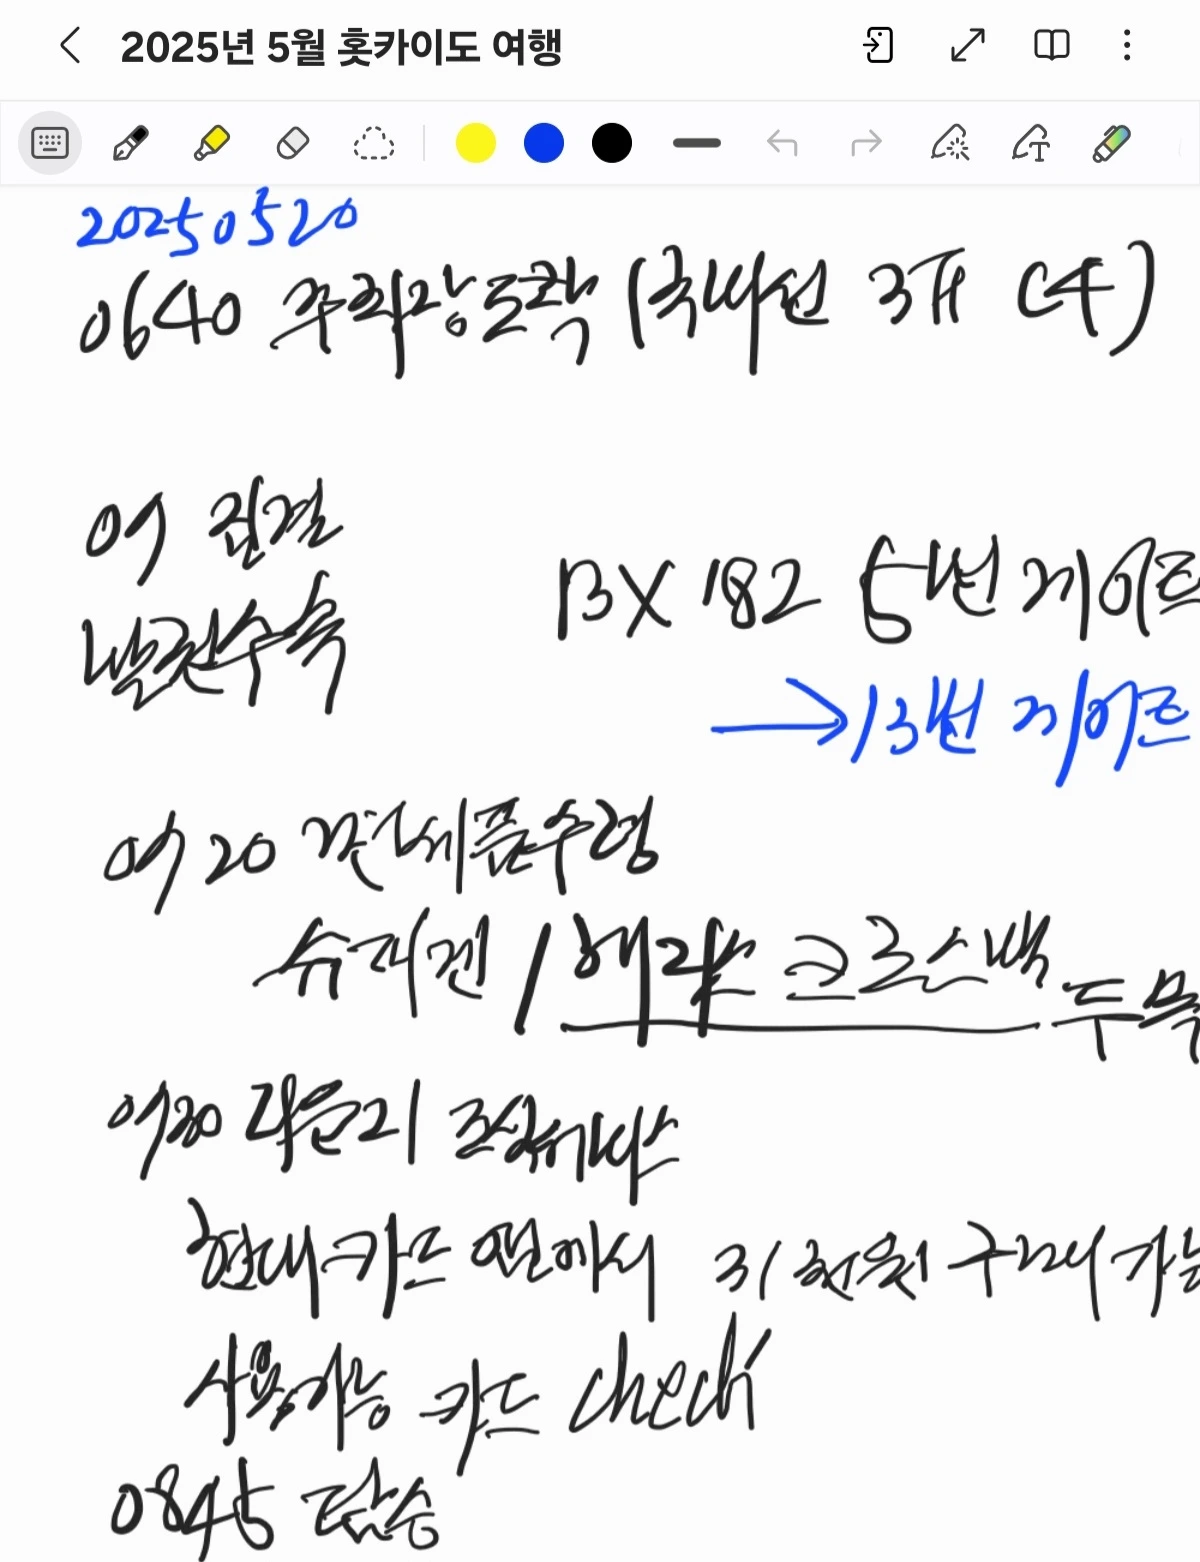 2025년 5월 홋카이도 여행
20250520
0640 주차장도착 (국내선 3F C4)
07 집결
발권수속
BX 182 5번 게이트
→ 13번 게이트
0720 면세품수령
슈피겐 / 해리스 크로스백
0730
현대카드 앱에서 구매가능
사용가능 카드 check
0845 탑승